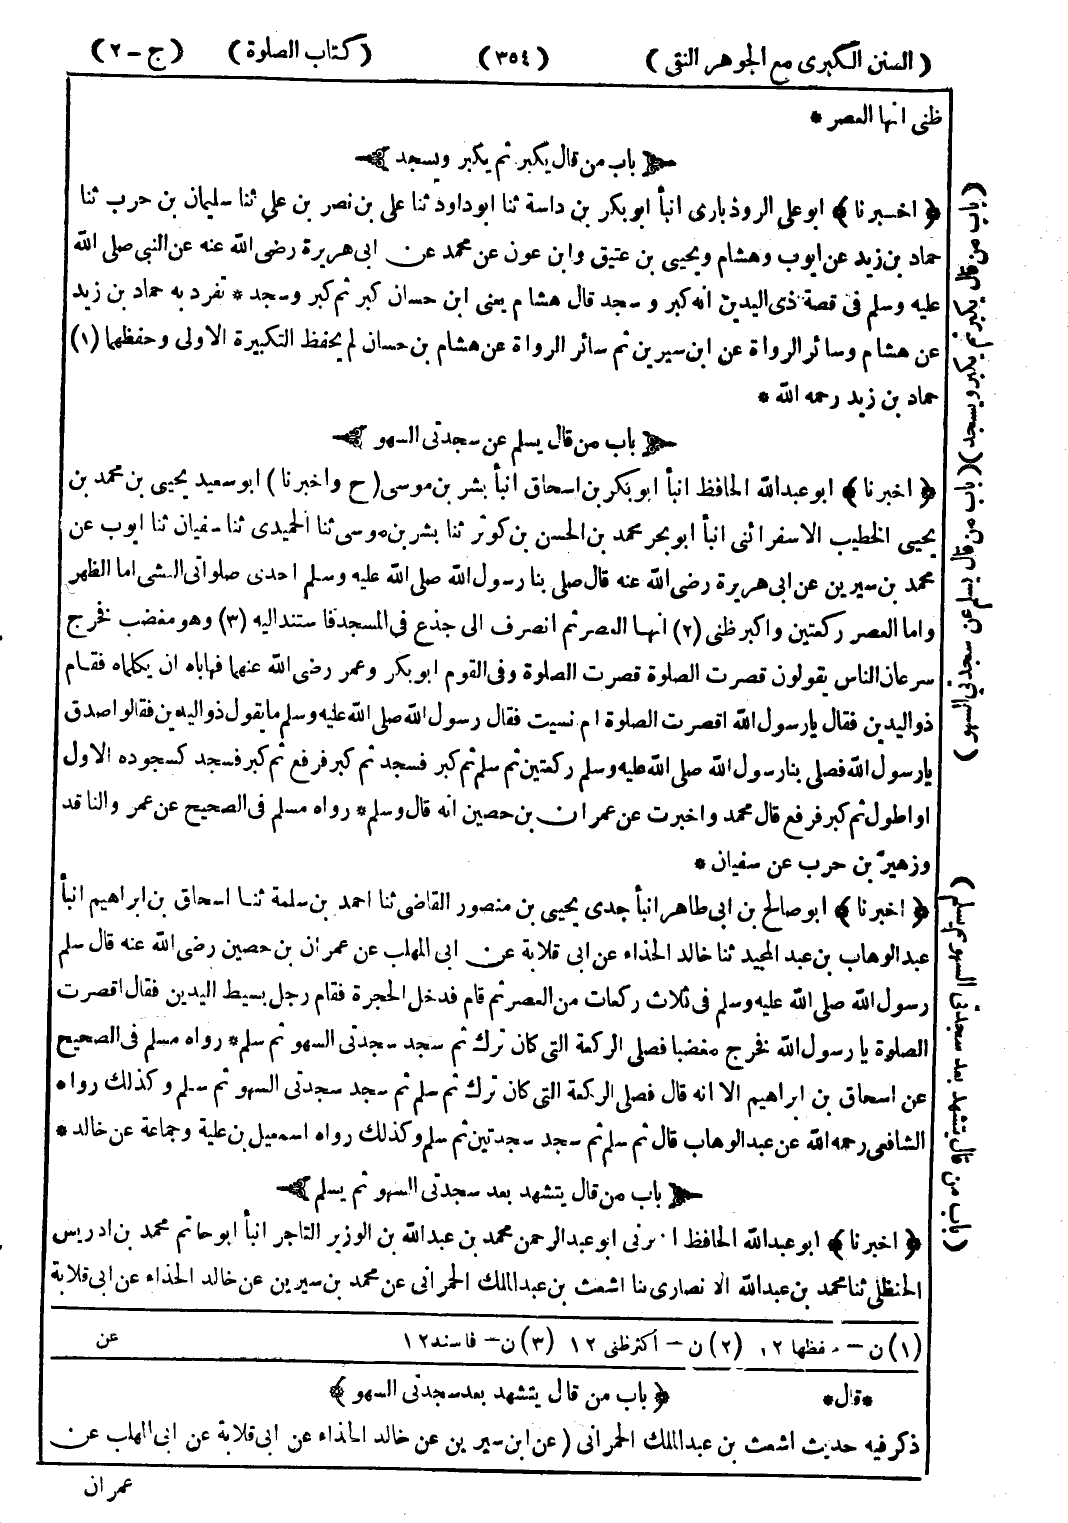 ( السنن الكبرى مع الجوهر النقى ) (٣٥٤) ( كتاب الصلوة ) ( ج - ٢ )
ظنى انها العصر *
باب من قال يكبر ثم يكبر ويسجد
﴿ اخبرنا ﴾ ابو على الروذبارى انبأ ابو بكر بن داسة ثنا ابو داود ثنا على بن نصر بن على ثنا سليمان بن حرب ثنا
حماد بن زيد عن ايوب وهشام ويحيى بن عتيق وابن عون عن محمد عن ابى هريرة رضى الله عنه عن النبى صلى الله
عليه وسلم فى قصة ذى اليدين انه كبر و سجد قال هشام يعنى ابن حسان كبر ثم كبر وسجد * تفرد به حماد بن زيد
عن هشام وسائر الرواة عن ابن سيرين ثم سائر الرواة عن هشام بن حسان لم يحفظ التكبيرة الاولى وحفظها (١)
حماد بن زيد رحمه الله *
باب من قال يسلم عن سجدتى السهو
﴿ اخبرنا ﴾ ابو عبد الله الحافظ انبأ ابو بكر بن اسحاق انبأ بشر بن موسى ( ح واخبرنا ) ابو سعيد يحيى بن محمد بن
يحيى الخطيب الاسفرائنى انبأ ابو بحر محمد بن الحسن بن كوثر ثنا بشر بن موسى ثنا الحميدى ثنا سفيان ثنا ايوب عن
محمد بن سيرين عن ابى هريرة رضى الله عنه قال صلى بنا رسول الله صلى الله عليه وسلم احدى صلواتى العشى اما الظهر
واما العصر ركعتين واكبر ظنى (٢) انها العصر ثم انصرف الى جذع فى المسجد فاستند اليه (٣) وهو مغضب فخرج
سرعان الناس يقولون قصرت الصلوة قصرت الصلوة وفى القوم ابو بكر وعمر رضى الله عنهما فهاباه ان يكلماه فقام
ذو اليدين فقال يا رسول الله اقصرت الصلوة ام نسيت فقال رسول الله صلى الله عليه وسلم ما يقول ذو اليدين فقالوا صدق
يا رسول الله فصلى بنا رسول الله صلى الله عليه وسلم ركعتين ثم سلم ثم كبر فسجد ثم كبر فرفع ثم كبر فسجد كسجوده الاول
او اطول ثم كبر فرفع قال محمد واخبرت عن عمران بن حصين انه قال وسلم * رواه مسلم فى الصحيح عن عمر والناقد
وزهير بن حرب عن سفيان *
﴿ اخبرنا ﴾ ابو صالح بن ابى طاهر انبأ جدى يحيى بن منصور القاضى ثنا احمد بن سلمة ثنا اسحاق بن ابراهيم انبأ
عبد الوهاب بن عبد المجيد ثنا خالد الحذاء عن ابى قلابة عن ابى المهلب عن عمران بن حصين رضى الله عنه قال سلم
رسول الله صلى الله عليه وسلم فى ثلاث ركعات من العصر ثم قام فدخل الحجرة فقام رجل بسيط اليدين فقال اقصرت
الصلوة يا رسول الله فخرج مغضبا فصلى الركعة التى كان ترك ثم سجد سجدتى السهو ثم سلم * رواه مسلم فى الصحيح
عن اسحاق بن ابراهيم الا انه قال فصلى الركعة التى كان ترك ثم سلم ثم سجد سجدتى السهو ثم سلم وكذلك رواه
الشافعى رحمه الله عن عبد الوهاب قال ثم سلم ثم سجد سجدتين ثم سلم وكذلك رواه اسمعيل بن علية وجماعة عن خالد *
باب من قال يتشهد بعد سجدتى السهو ثم يسلم
﴿ اخبرنا ﴾ ابو عبد الله الحافظ اخبرنى ابو عبد الرحمن محمد بن عبد الله بن الوزير التاجر انبأ ابو حاتم محمد بن ادريس
الحنظلى ثنا محمد بن عبد الله الانصارى ثنا اشعث بن عبد الملك الحمرانى عن محمد بن سيرين عن خالد الحذاء عن ابى قلابة
(١) ن – حفظها ١٢ (٢) ن – أكثر ظنى ١٢ (٣) ن – فاسند ١٢ عن
*قال* ﴿ باب من قال يتشهد بعد سجدتى السهو ﴾
ذكر فيه حديث اشعث بن عبد الملك الحمرانى ( عن ابن سيرين عن خالد الحذاء عن ابى قلابة عن ابى المهلب عن
عمران
( باب من قال يكبر ثم يكبر ويسجد )
( باب من قال يسلم عن سجدتى السهو )
( باب من قال يتشهد بعد سجدتى السهو ثم يسلم )